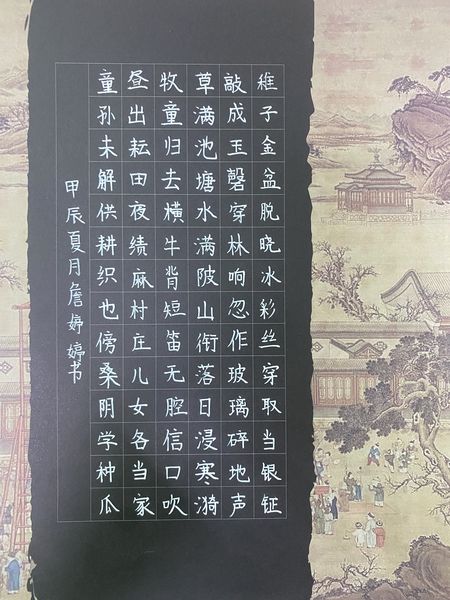 稚子金盆脱晓冰彩丝穿取当银钲
敲成玉磬穿林响忽作玻璃碎地声
草满池塘水满陂山衔落日浸寒漪
牧童归去横牛背短笛无腔信口吹
昼出耘田夜绩麻村庄儿女各当家
童孙未解供耕织也傍桑阴学种瓜
甲辰夏月詹婷婷书